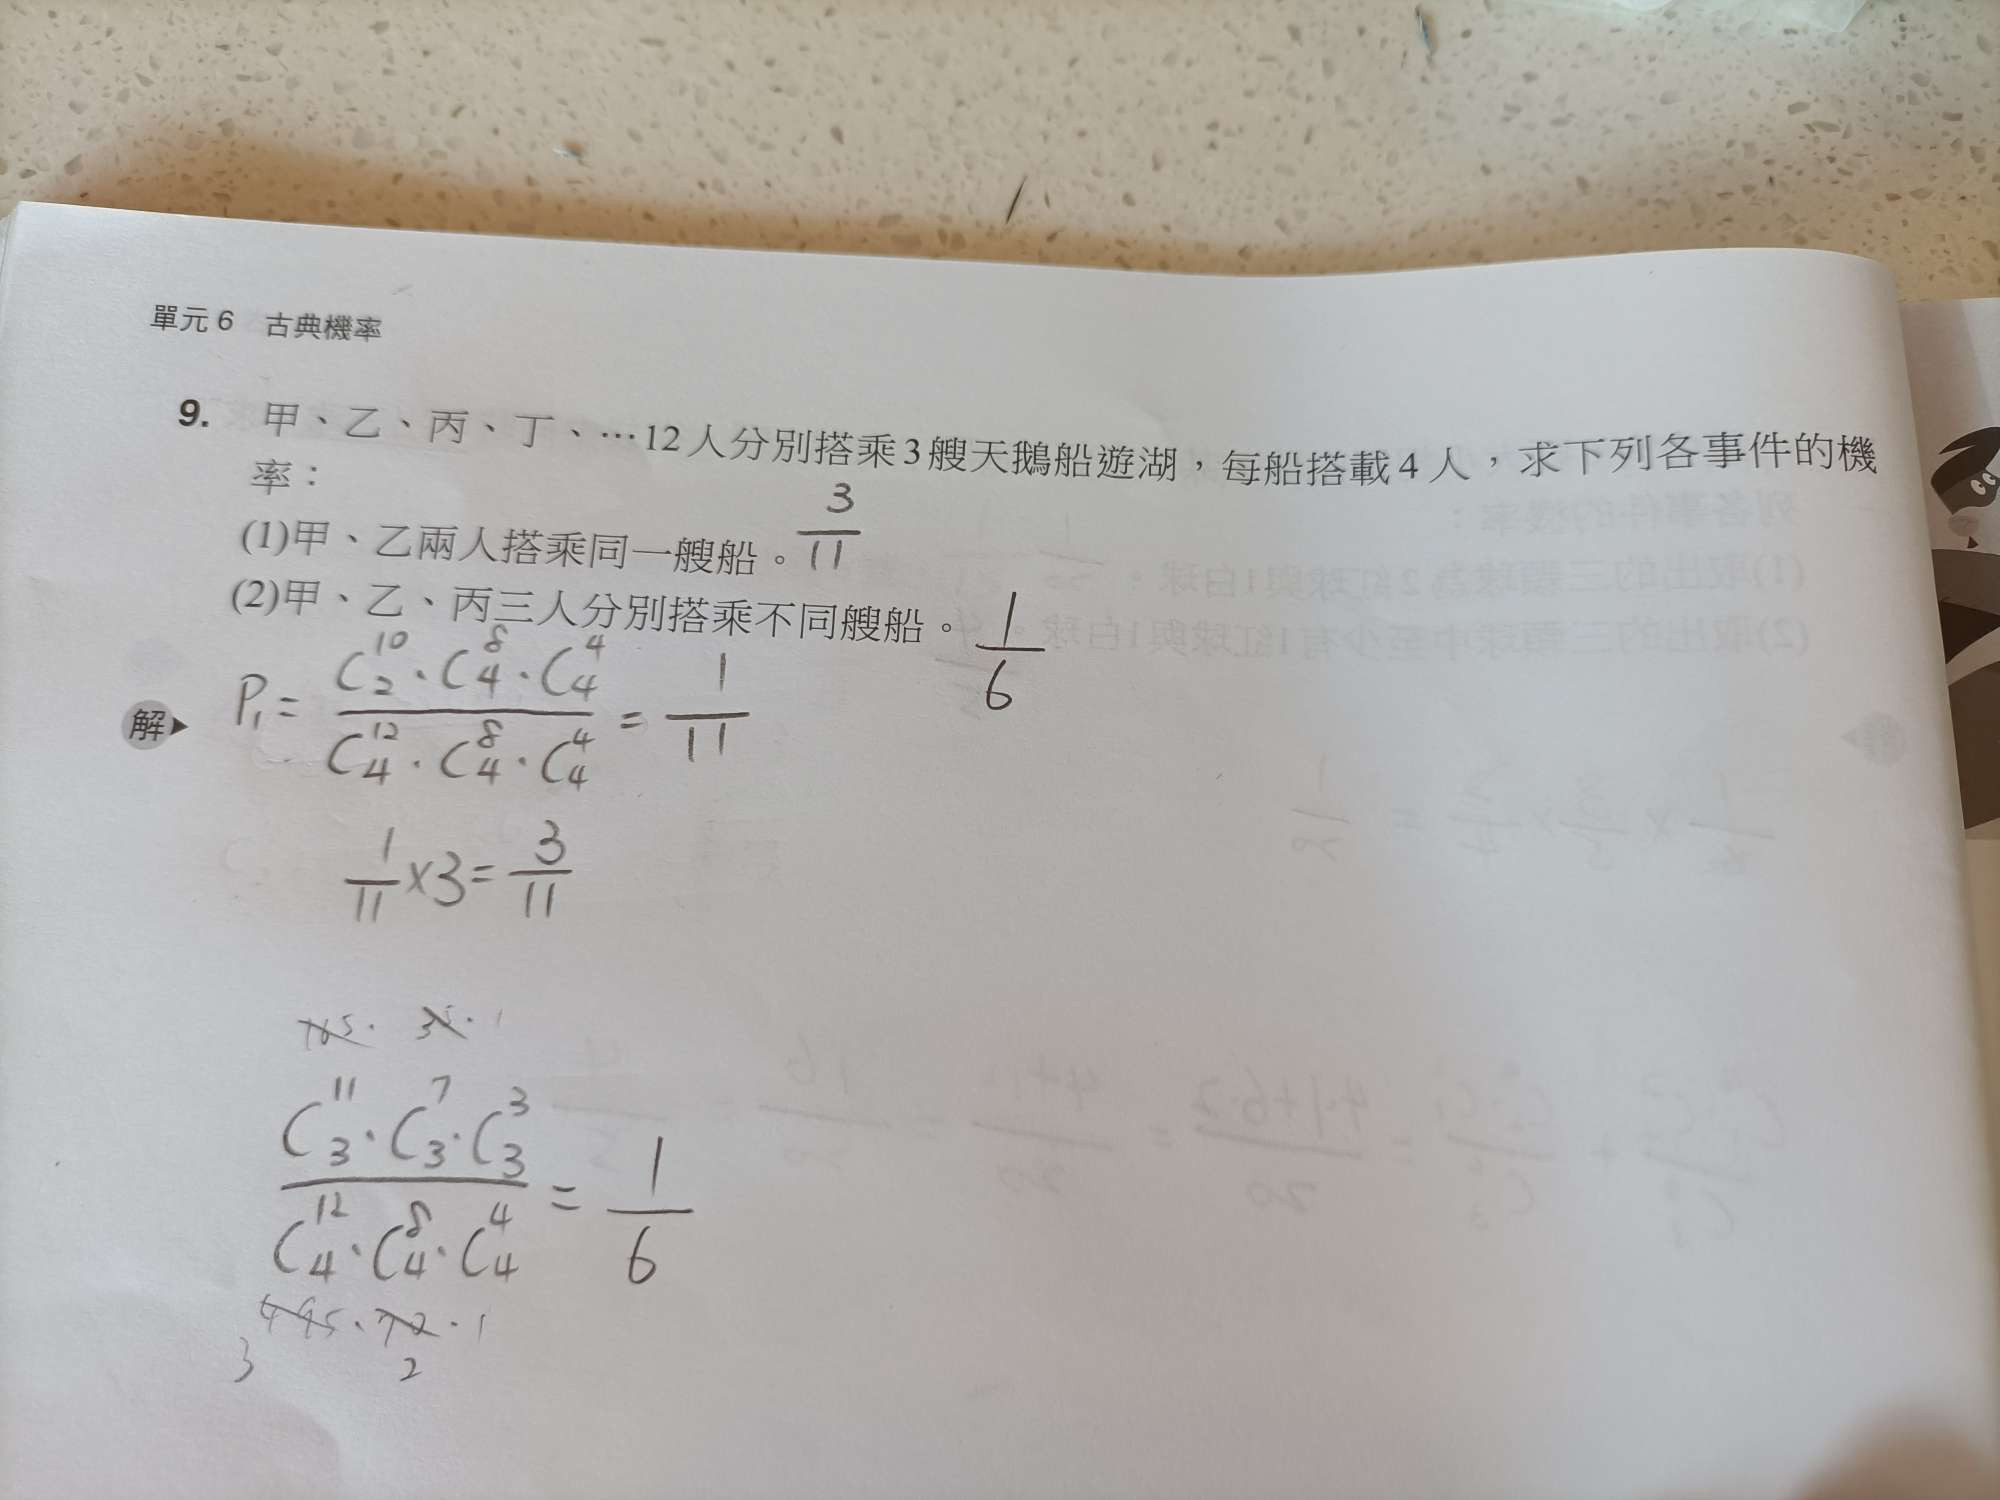 單元 6 古典機率
9. 甲、乙、丙、丁、…12人分別搭乘3艘天鵝船遊湖，每船搭載4人，求下列各事件的機
率：
(1)甲、乙兩人搭乘同一艘船。 3/11
(2)甲、乙、丙三人分別搭乘不同艘船。 1/6
解▶ P₁ = (C¹⁰₂ · C⁸₄ · C⁴₄)/(C¹²₄ · C⁸₄ · C⁴₄) = 1/11
1/11 × 3 = 3/11
(C¹¹₃ · C⁷₃ · C³₃)/(C¹²₄ · C⁸₄ · C⁴₄) = 1/6
3 2